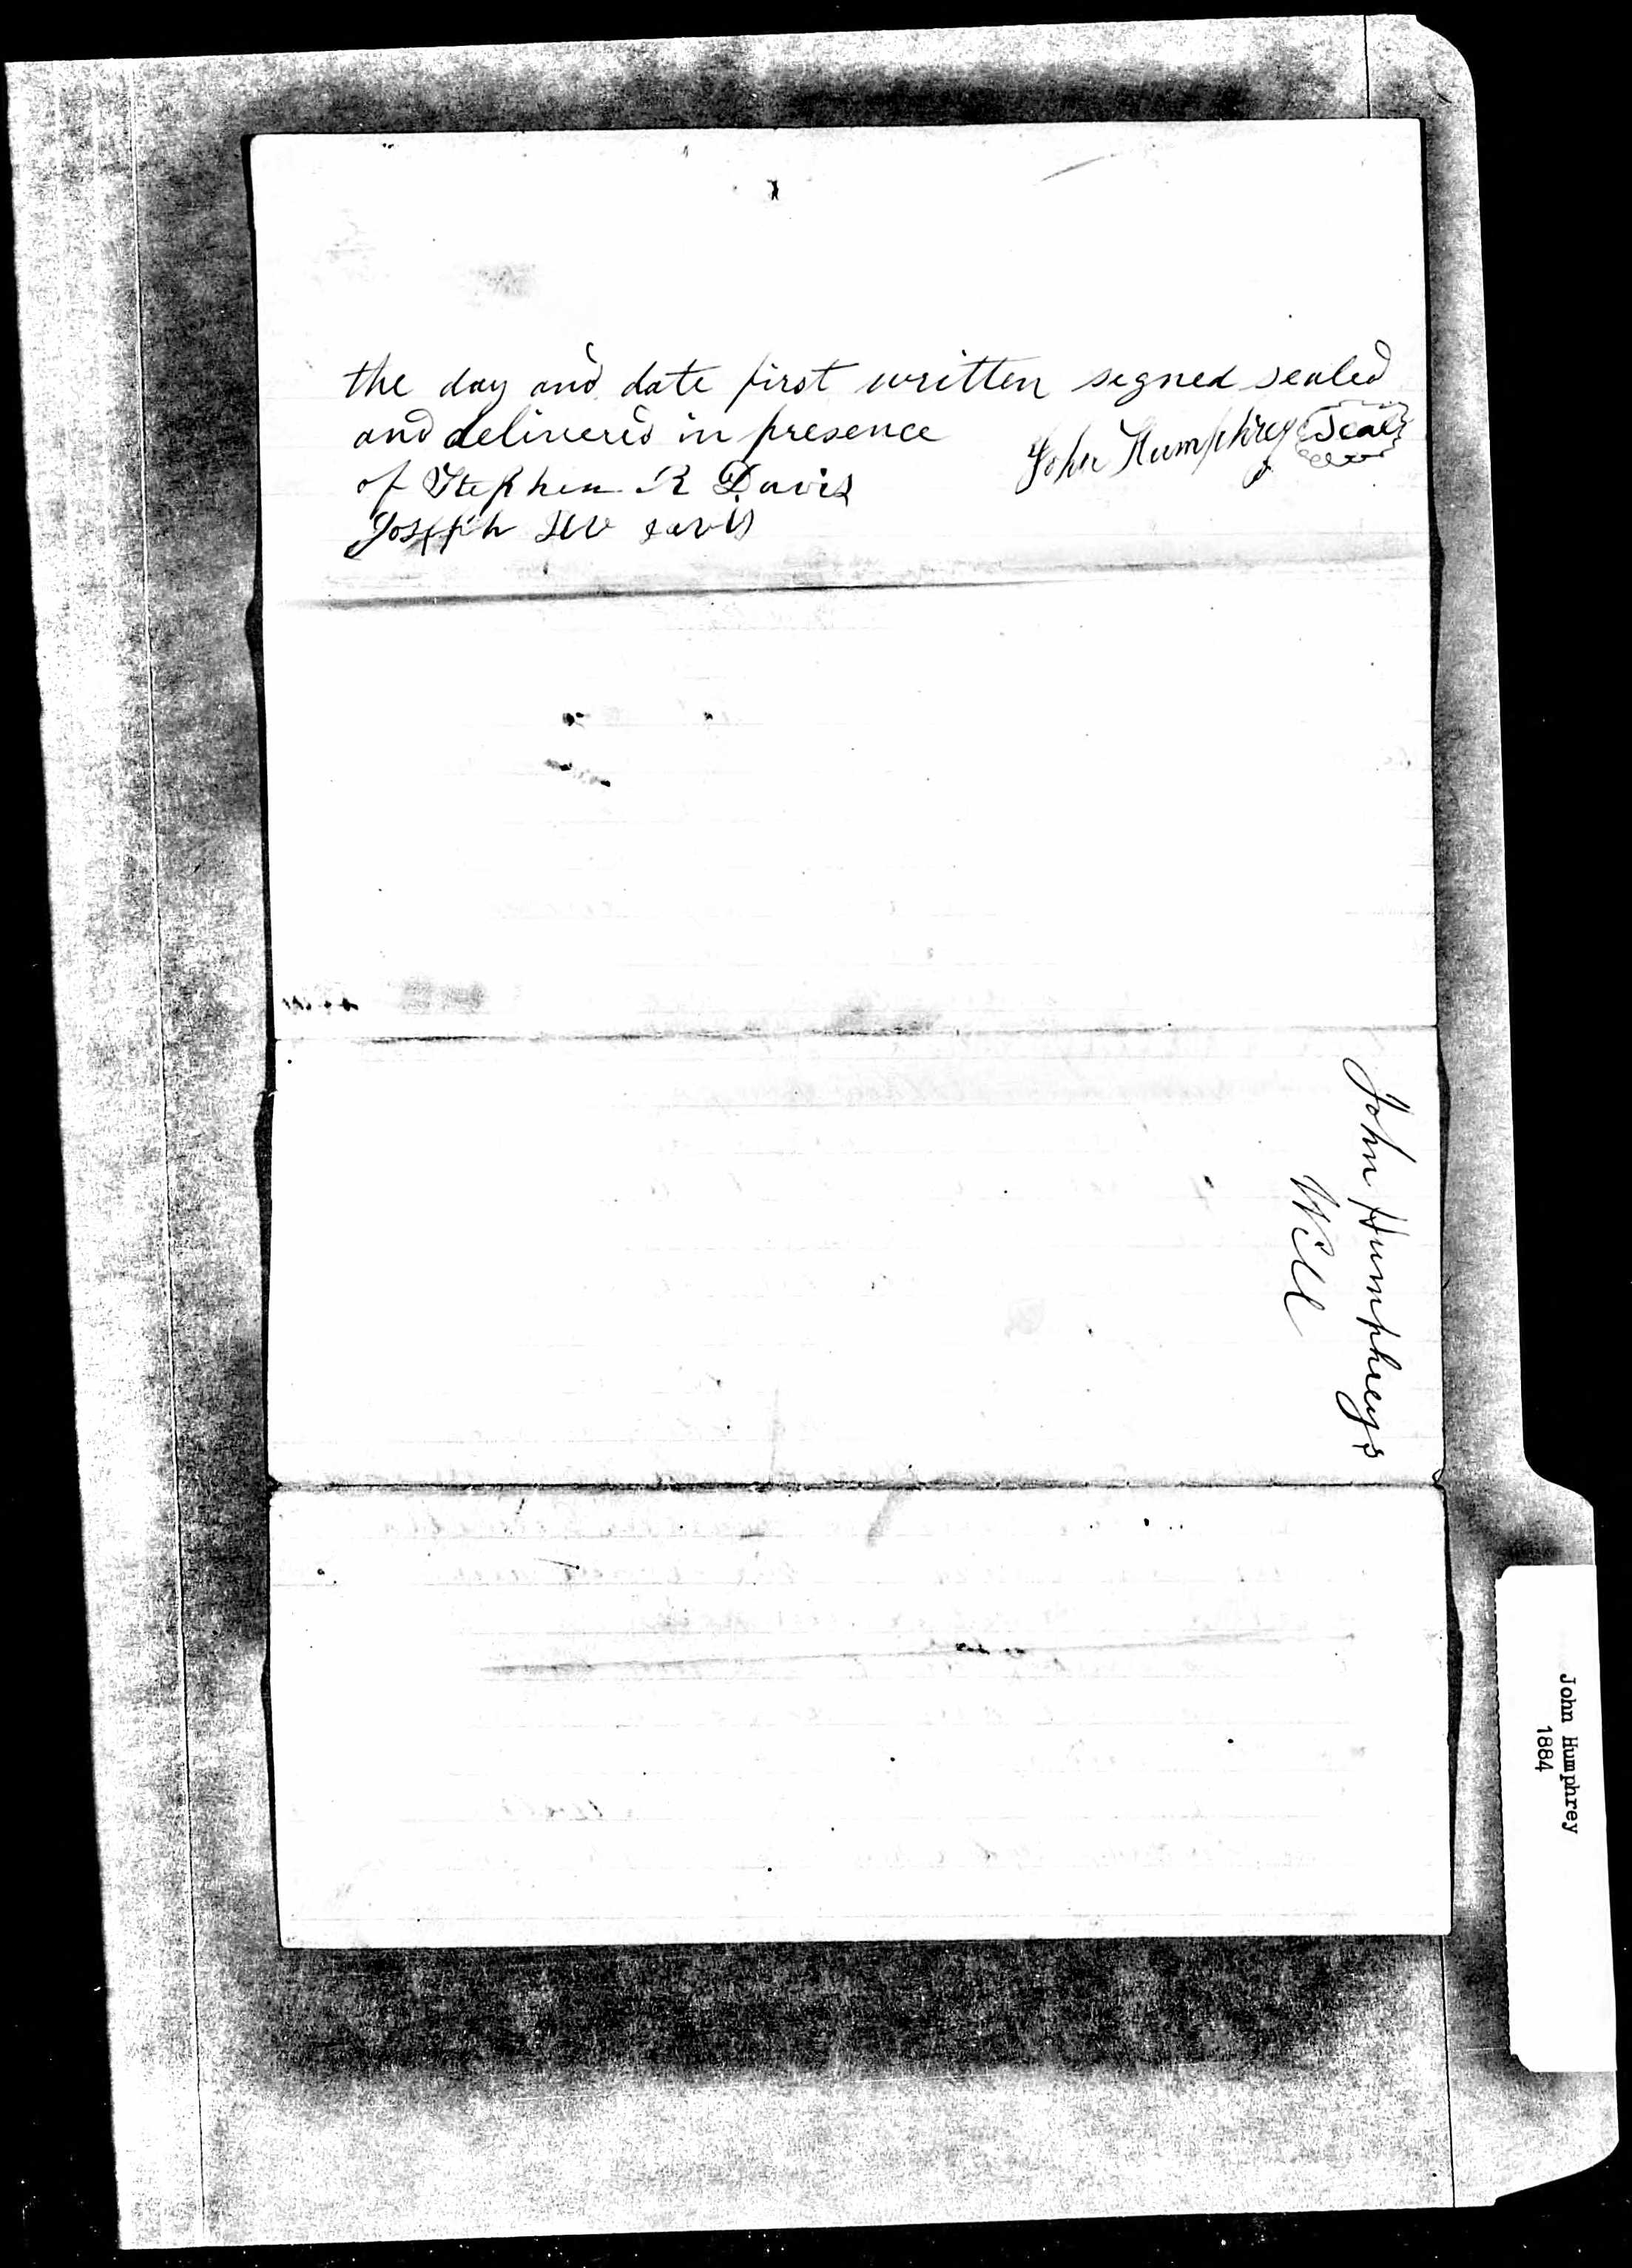 the day and date first written segned sealed
and delivered in presence
John Humphrey Seal
of Stephen R Davis
Joseph davis
John Humphreys
Will
John Humphrey
1884